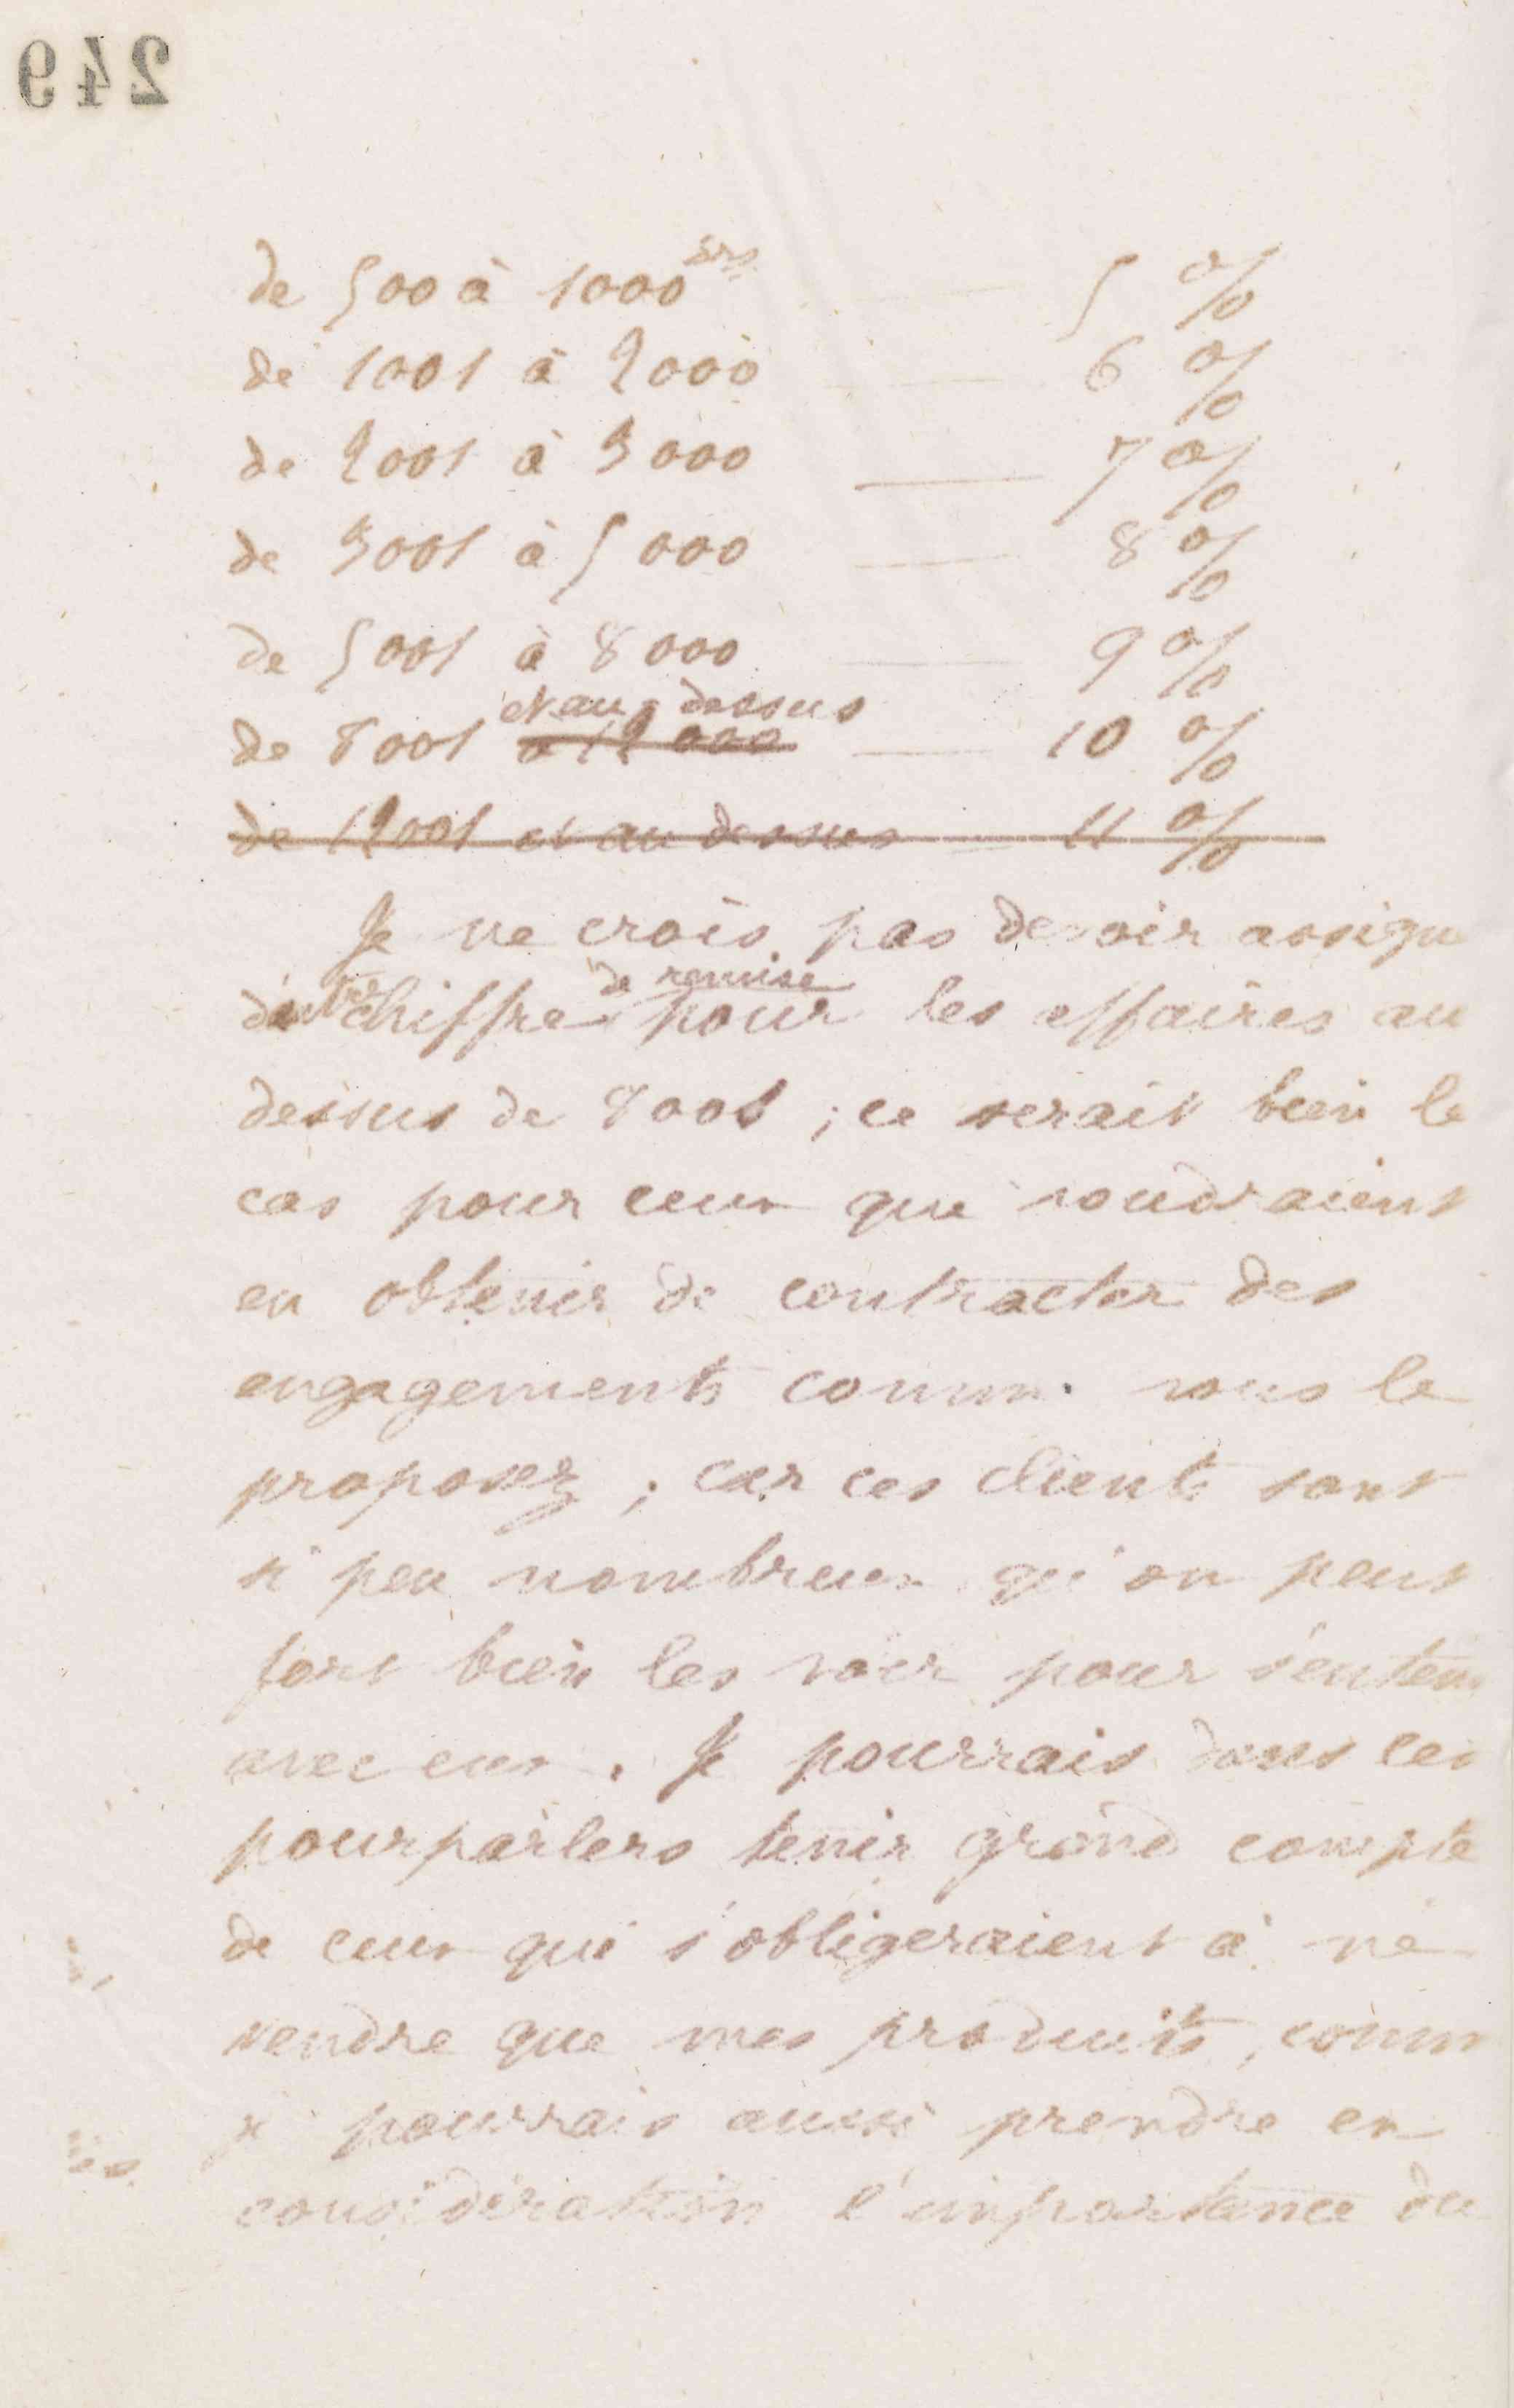 249
de 500 à 1000 frs — 5 %
de 1001 à 2000 — 6 %
de 2001 à 3000 — 7 %
de 3001 à 5000 — 8 %
de 5001 à 8000 — 9 %
et au dessus
de 8001 à 12000 — 10 %
de 12001 et au dessus — 11 %
Je ne crois pas devoir assigne
de remise
d'autres chiffres pour les affaires au
dessus de 8001 ; ce serait bien le
cas pour ceux que voudraient
en obtenir de contracter des
engagements comm. vous le
proposez ; car ces clients sont
si peu nombreux qu'on peut
fort bien les voir pour s'enten
avec eux. Je pourrais dans ces
pourparlers tenir grand compte
de ceux qui s'obligeraient à ne
vendre que mes produits, comm
je pourrais aussi prendre en
considération l'importance du